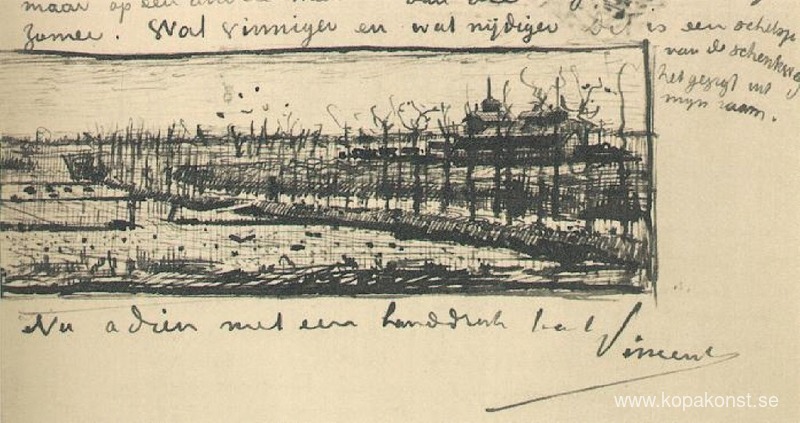 maar op een
zomer. Wat vinniger en wat nijdiger
Dit is een schetsje
van de schenkweg
het gezigt uit
mijn raam.
Nu adieu met een handdruk
Vincent
www.kopakonst.se